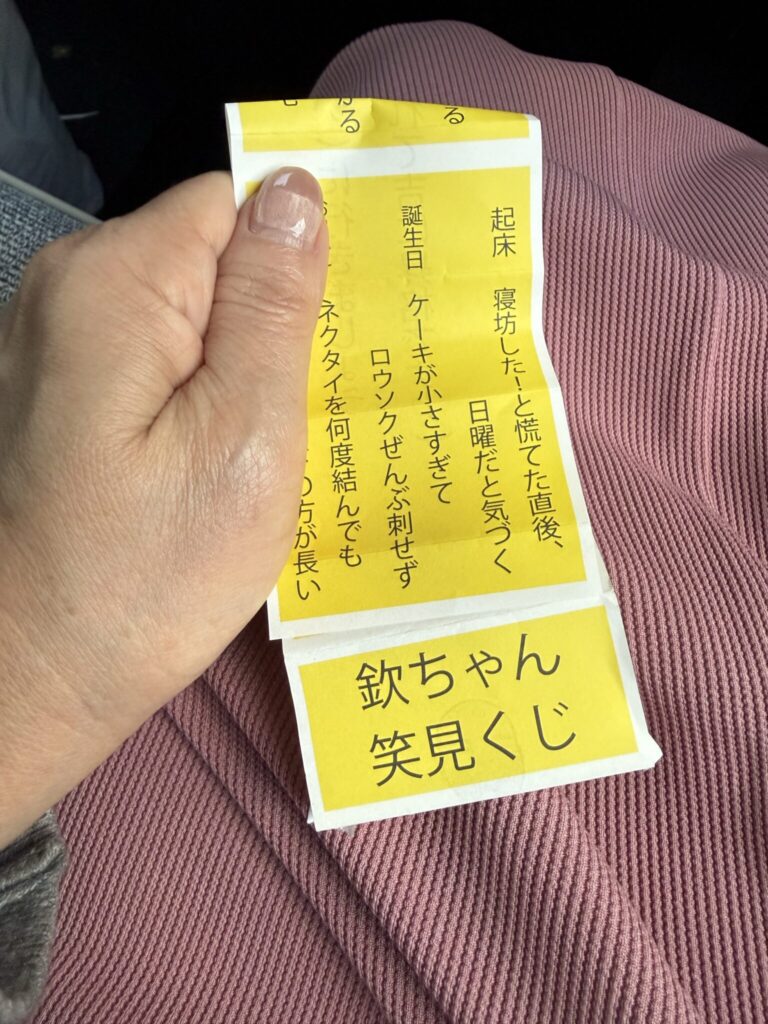 起床 寝坊した!と慌てた直後、
日曜だと気づく
誕生日 ケーキが小さすぎて
ロウソクぜんぶ刺せず
ネクタイを何度結んでも
の方が長い
欽ちゃん
笑見くじ